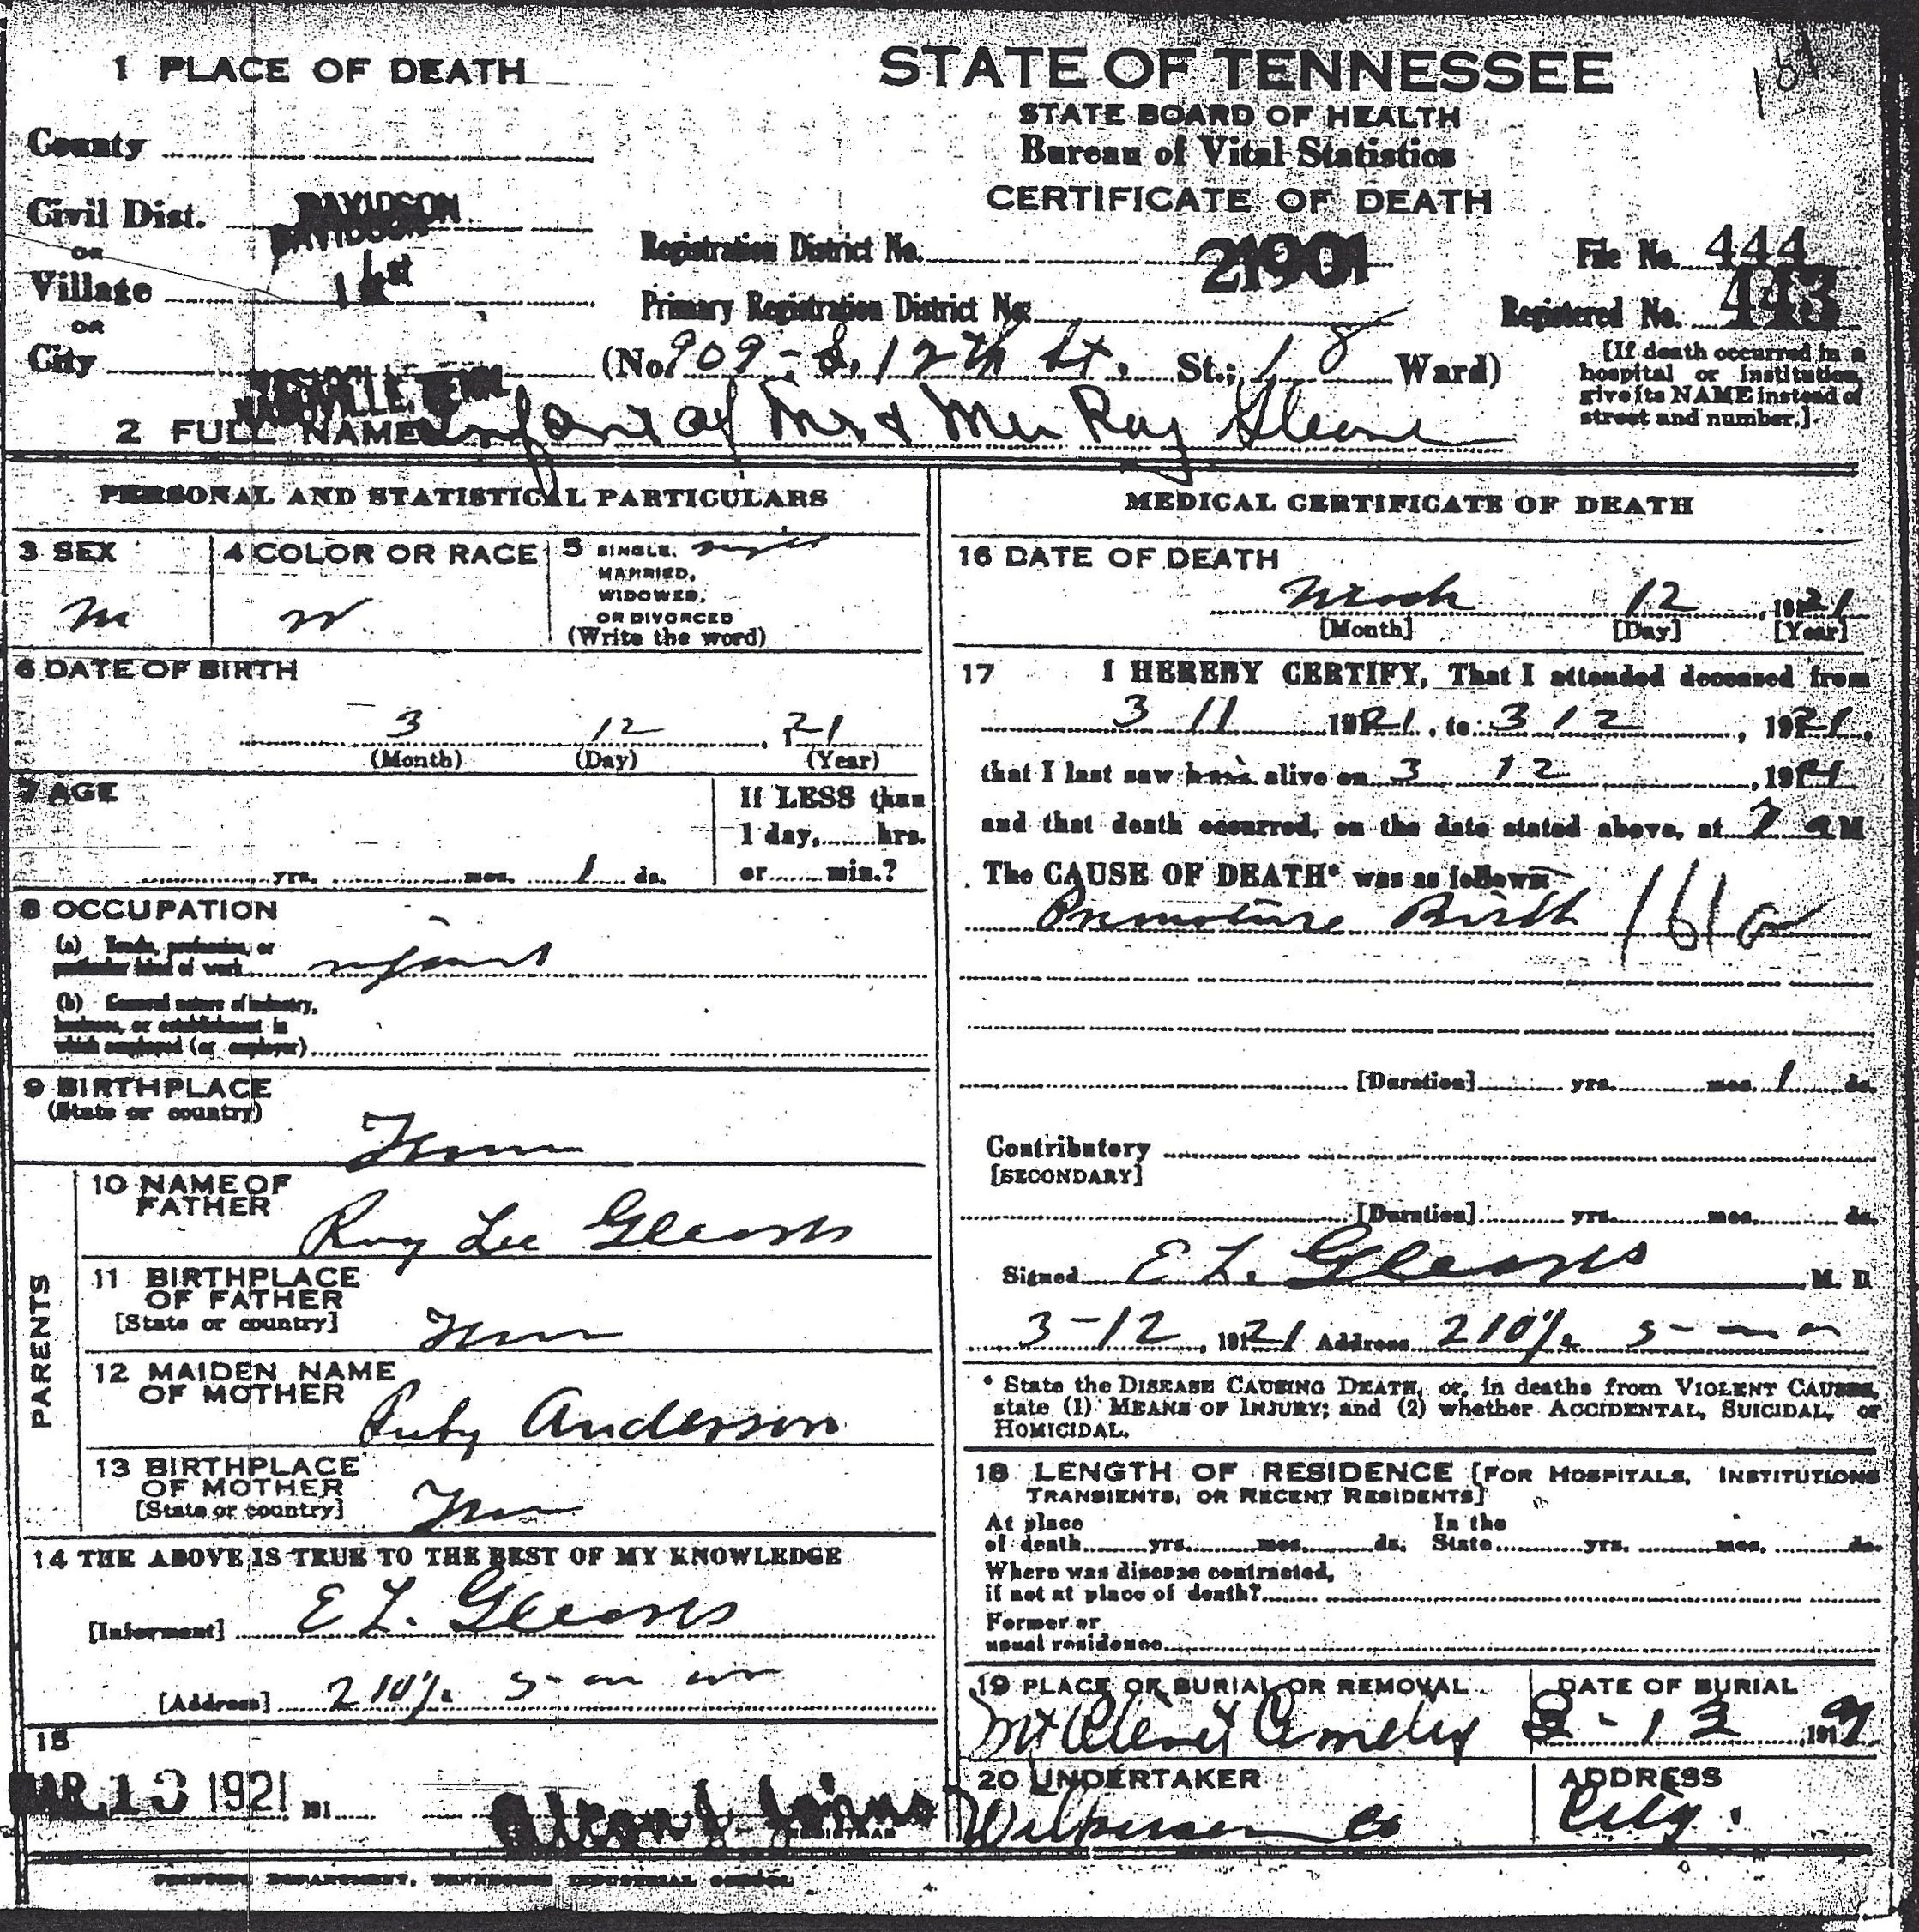 1 PLACE OF DEATH
STATE OF TENNESSEE
STATE BOARD OF HEALTH
Bureau of Vital Statistics
CERTIFICATE OF DEATH
161
County
Civil Dist. DAVIDSON
DAVIDSON
or
Village
or
City NASHVILLE, TENN
NASHVILLE, TENN
Registration District No. 21901
Primary Registration District No.
File No. 444
Registered No. 443
(No. 909 - S. 12th St. St.; 18 Ward)
[If death occurred in a
hospital or institution,
give its NAME instead of
street and number.]
2 FULL NAME Infant of Mr & Mrs Ray
PERSONAL AND STATISTICAL PARTICULARS
3 SEX
M
4 COLOR OR RACE
W
5 SINGLE, single
MARRIED,
WIDOWED,
OR DIVORCED
(Write the word)
6 DATE OF BIRTH
3 12 , 21
(Month) (Day) (Year)
7 AGE
yrs. mos. 1 ds.
If LESS than
1 day, hrs.
or min.?
8 OCCUPATION
(a) Trade, profession, or
particular kind of work infant
(b) General nature of industry,
business, or establishment in
which employed (or employer)
9 BIRTHPLACE
(State or country)
Tenn
PARENTS
10 NAME OF
FATHER
Roy Lee Gleaves
11 BIRTHPLACE
OF FATHER
[State or country]
Tenn
12 MAIDEN NAME
OF MOTHER
Ruby Anderson
13 BIRTHPLACE
OF MOTHER
[State or country]
Tenn
14 THE ABOVE IS TRUE TO THE BEST OF MY KNOWLEDGE
[Informant] E L. Gleaves
[Address] 210½
15
MAR 13 1921 191
REGISTRAR
PRINTING DEPARTMENT, TENNESSEE INDUSTRIAL SCHOOL
MEDICAL CERTIFICATE OF DEATH
16 DATE OF DEATH
March 12 , 1921
[Month] [Day] [Year]
17 I HEREBY CERTIFY, That I attended deceased from
3 11 1921, to 3 12, 1921,
that I last saw him alive on 3 12, 1921
and that death occurred, on the date stated above, at 7 a M
The CAUSE OF DEATH* was as follows:
Premature Birth 161a
[Duration] yrs. mos. 1 ds.
Contributory
[SECONDARY]
[Duration] yrs. mos. ds.
Signed E L. Gleaves, M. D.
3-12, 1921 Address 210½
* State the DISEASE CAUSING DEATH, or, in deaths from VIOLENT CAUSES,
state (1) MEANS OF INJURY; and (2) whether ACCIDENTAL, SUICIDAL, or
HOMICIDAL.
18 LENGTH OF RESIDENCE [FOR HOSPITALS, INSTITUTIONS
TRANSIENTS, OR RECENT RESIDENTS]
At place In the
of death yrs. mos. ds. State yrs. mos. ds.
Where was disease contracted,
if not at place of death?
Former or
usual residence
19 PLACE OF BURIAL OR REMOVAL
Mt Olivet Cemetery
DATE OF BURIAL
3-13
20 UNDERTAKER
Wilkerson Co
ADDRESS
City.